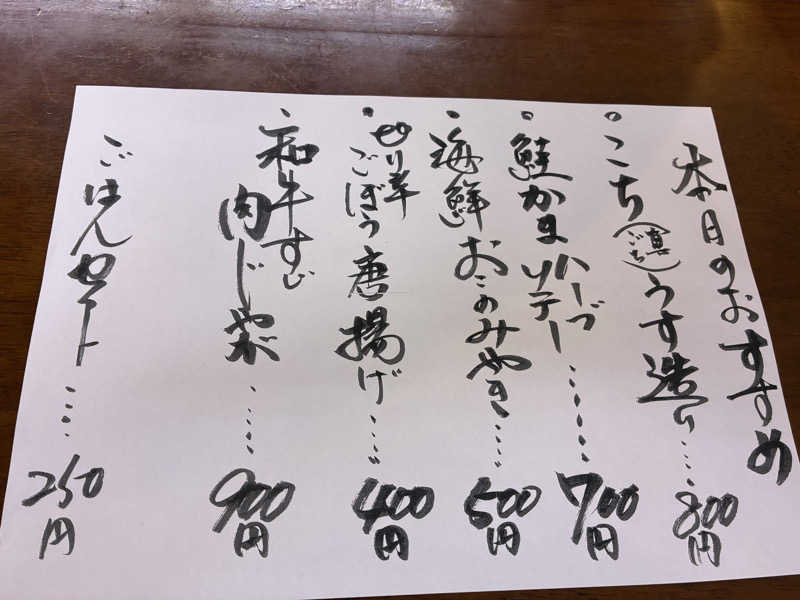 本日のおすすめ
こち(真ごち)うす造り……800円
鮭かまハーブソテー……700円
海鮮おこのみやき……500円
せり芋ごぼう唐揚げ……400円
和牛すじ肉じゃが……900円
ごはんセット……250円